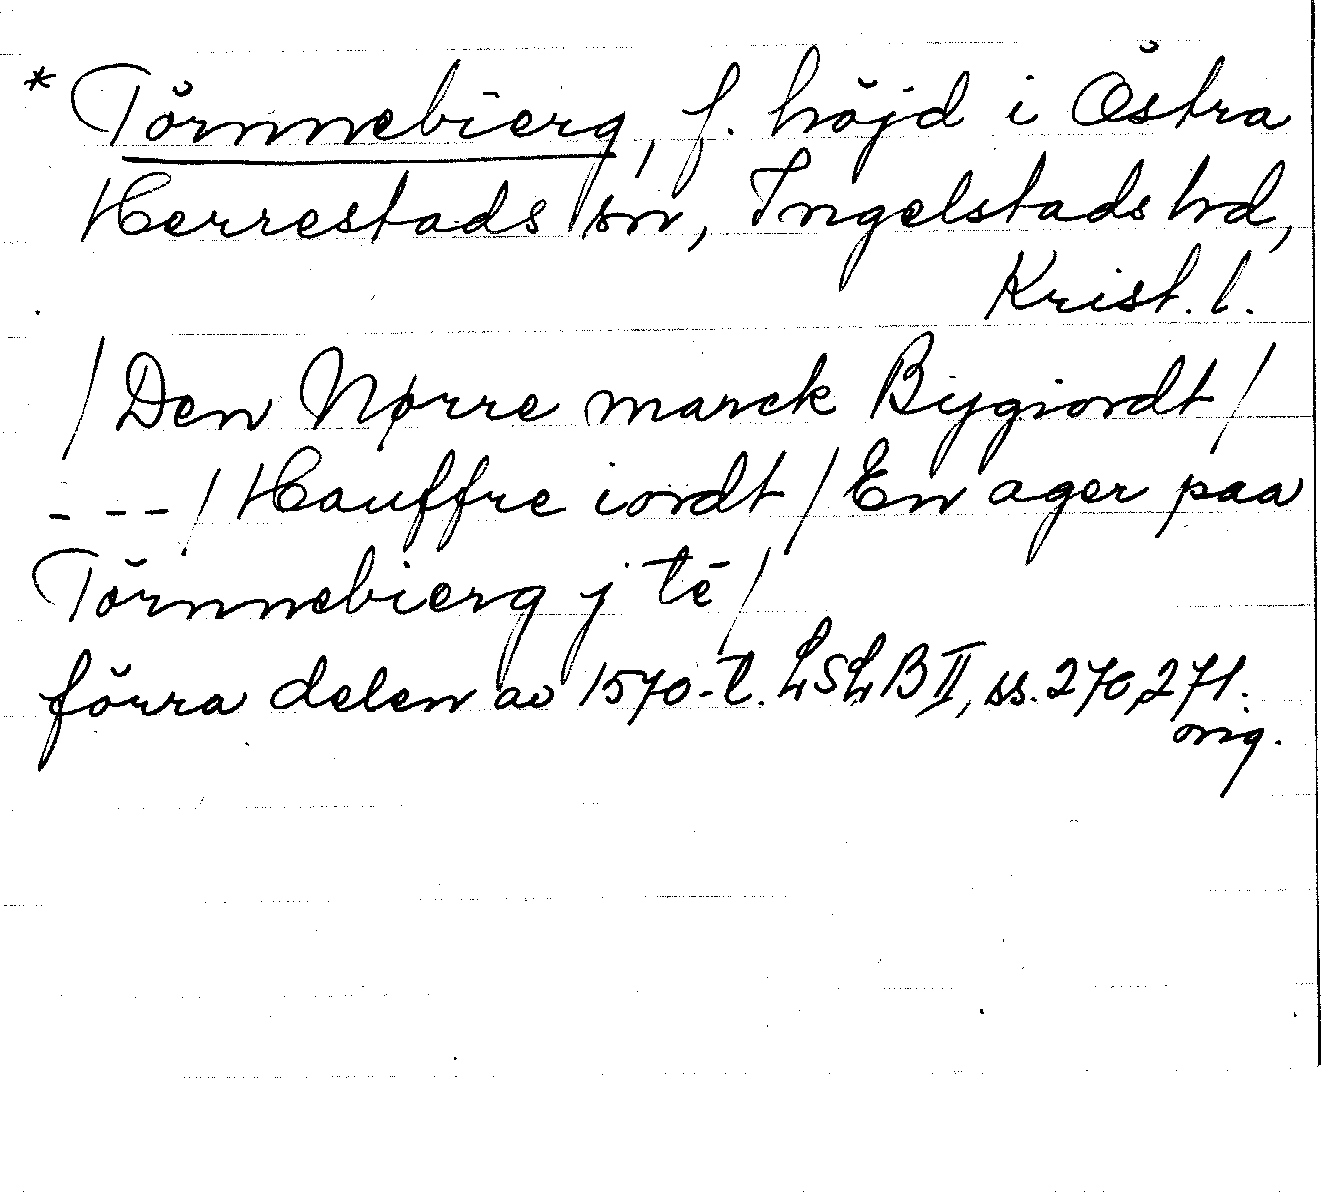 * Törnnebierg, f. höjd i Östra
Herrestads sn, Ingelstads hd,
Krist. l.
/ Den Nørre marck Bygiordt /
- - - / Hauffre iordt / En ager paa
Törnnebierg j tē /
förra delen av 1570-t. LSLB II, ss. 270, 271.
orig.